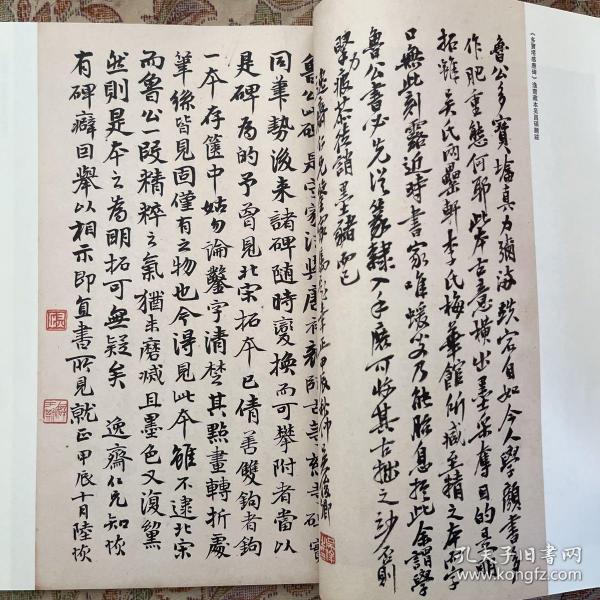 《多寶塔感應碑》逸齋藏本吳昌碩題跋
魯公多寶塔真力彌滿跌宕自如今人學顏書多
作肥重態何耶此本古意橫出墨采奪目的是明
拓雖吳氏兩罍軒李氏梅華館所藏至精之本字
口無此刻露近時書家唯蝯叟乃能胎息於此余謂學
魯公書必先從篆隸入手庶可將其古拙之妙否則
墨瀋而已
逸齋仁兄
魯公此碑是
同筆勢後來諸碑隨時變換而可攀附者當以
是碑為的予曾見北宋拓本已倩善雙鉤者鉤
一本存篋中姑勿論鑿字清楚其點畫轉折處
筆絲皆見固僅有之物也今得見此本雖不逮北宋
而魯公一段精粹之氣猶未磨滅且墨色又復黧
然則是本之為明拓可無疑矣 逸齋仁兄知恢
有碑癖回舉以相示即直書所見就正甲辰十月陸恢
孔夫子旧书网